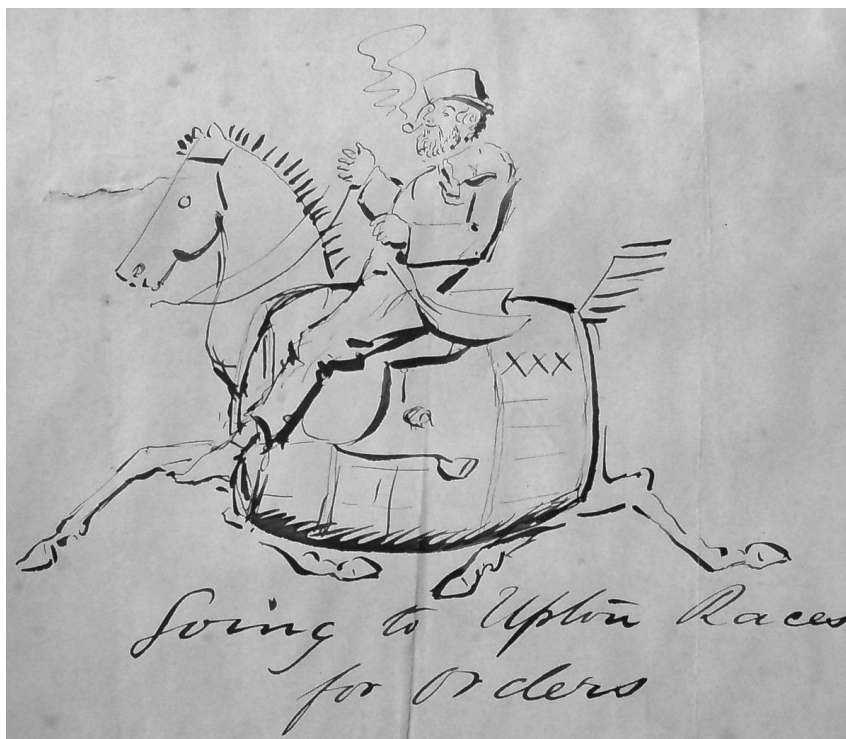 XXX
Going to Upton Races
for Orders